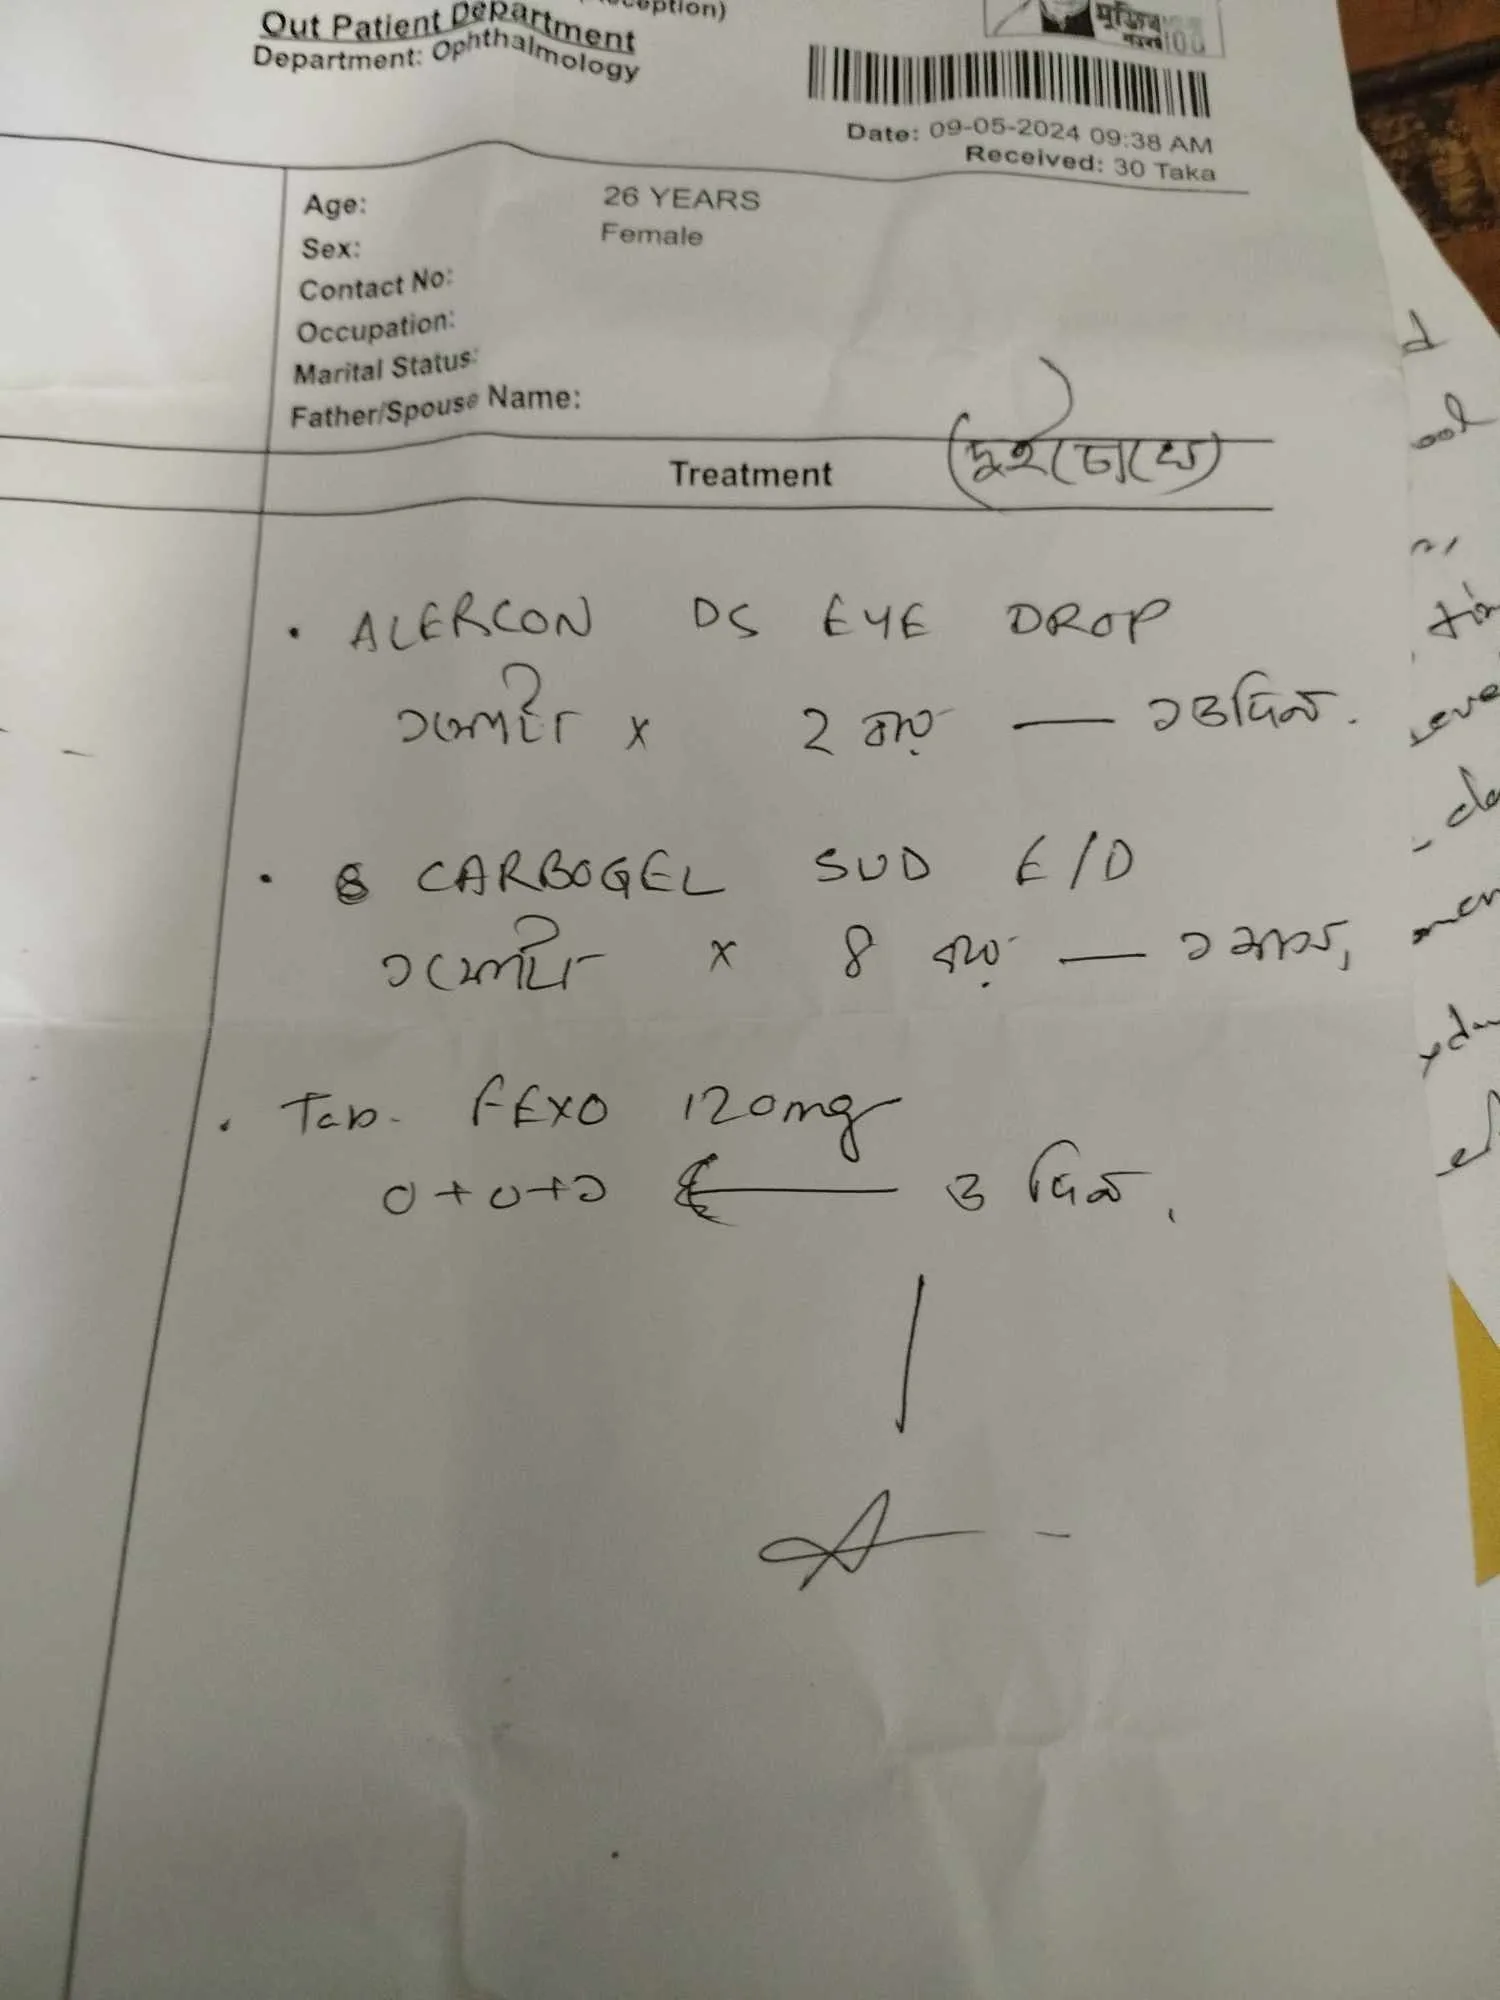 Out Patient Department
Department: Ophthalmology
মুজিব
100
Date: 09-05-2024 09:38 AM
Received: 30 Taka
Age: 26 YEARS
Sex: Female
Contact No:
Occupation:
Marital Status:
Father/Spouse Name:
Treatment (দুই চোখে)
• ALERCON DS EYE DROP
১ ফোঁটা x ২ বার — ১৫ দিন.
• CARBOGEL SUD E/D
১ ফোঁটা x ৪ বার — ১ মাস,
• Tab. FEXO 120mg
০+০+১ — ৩ দিন,